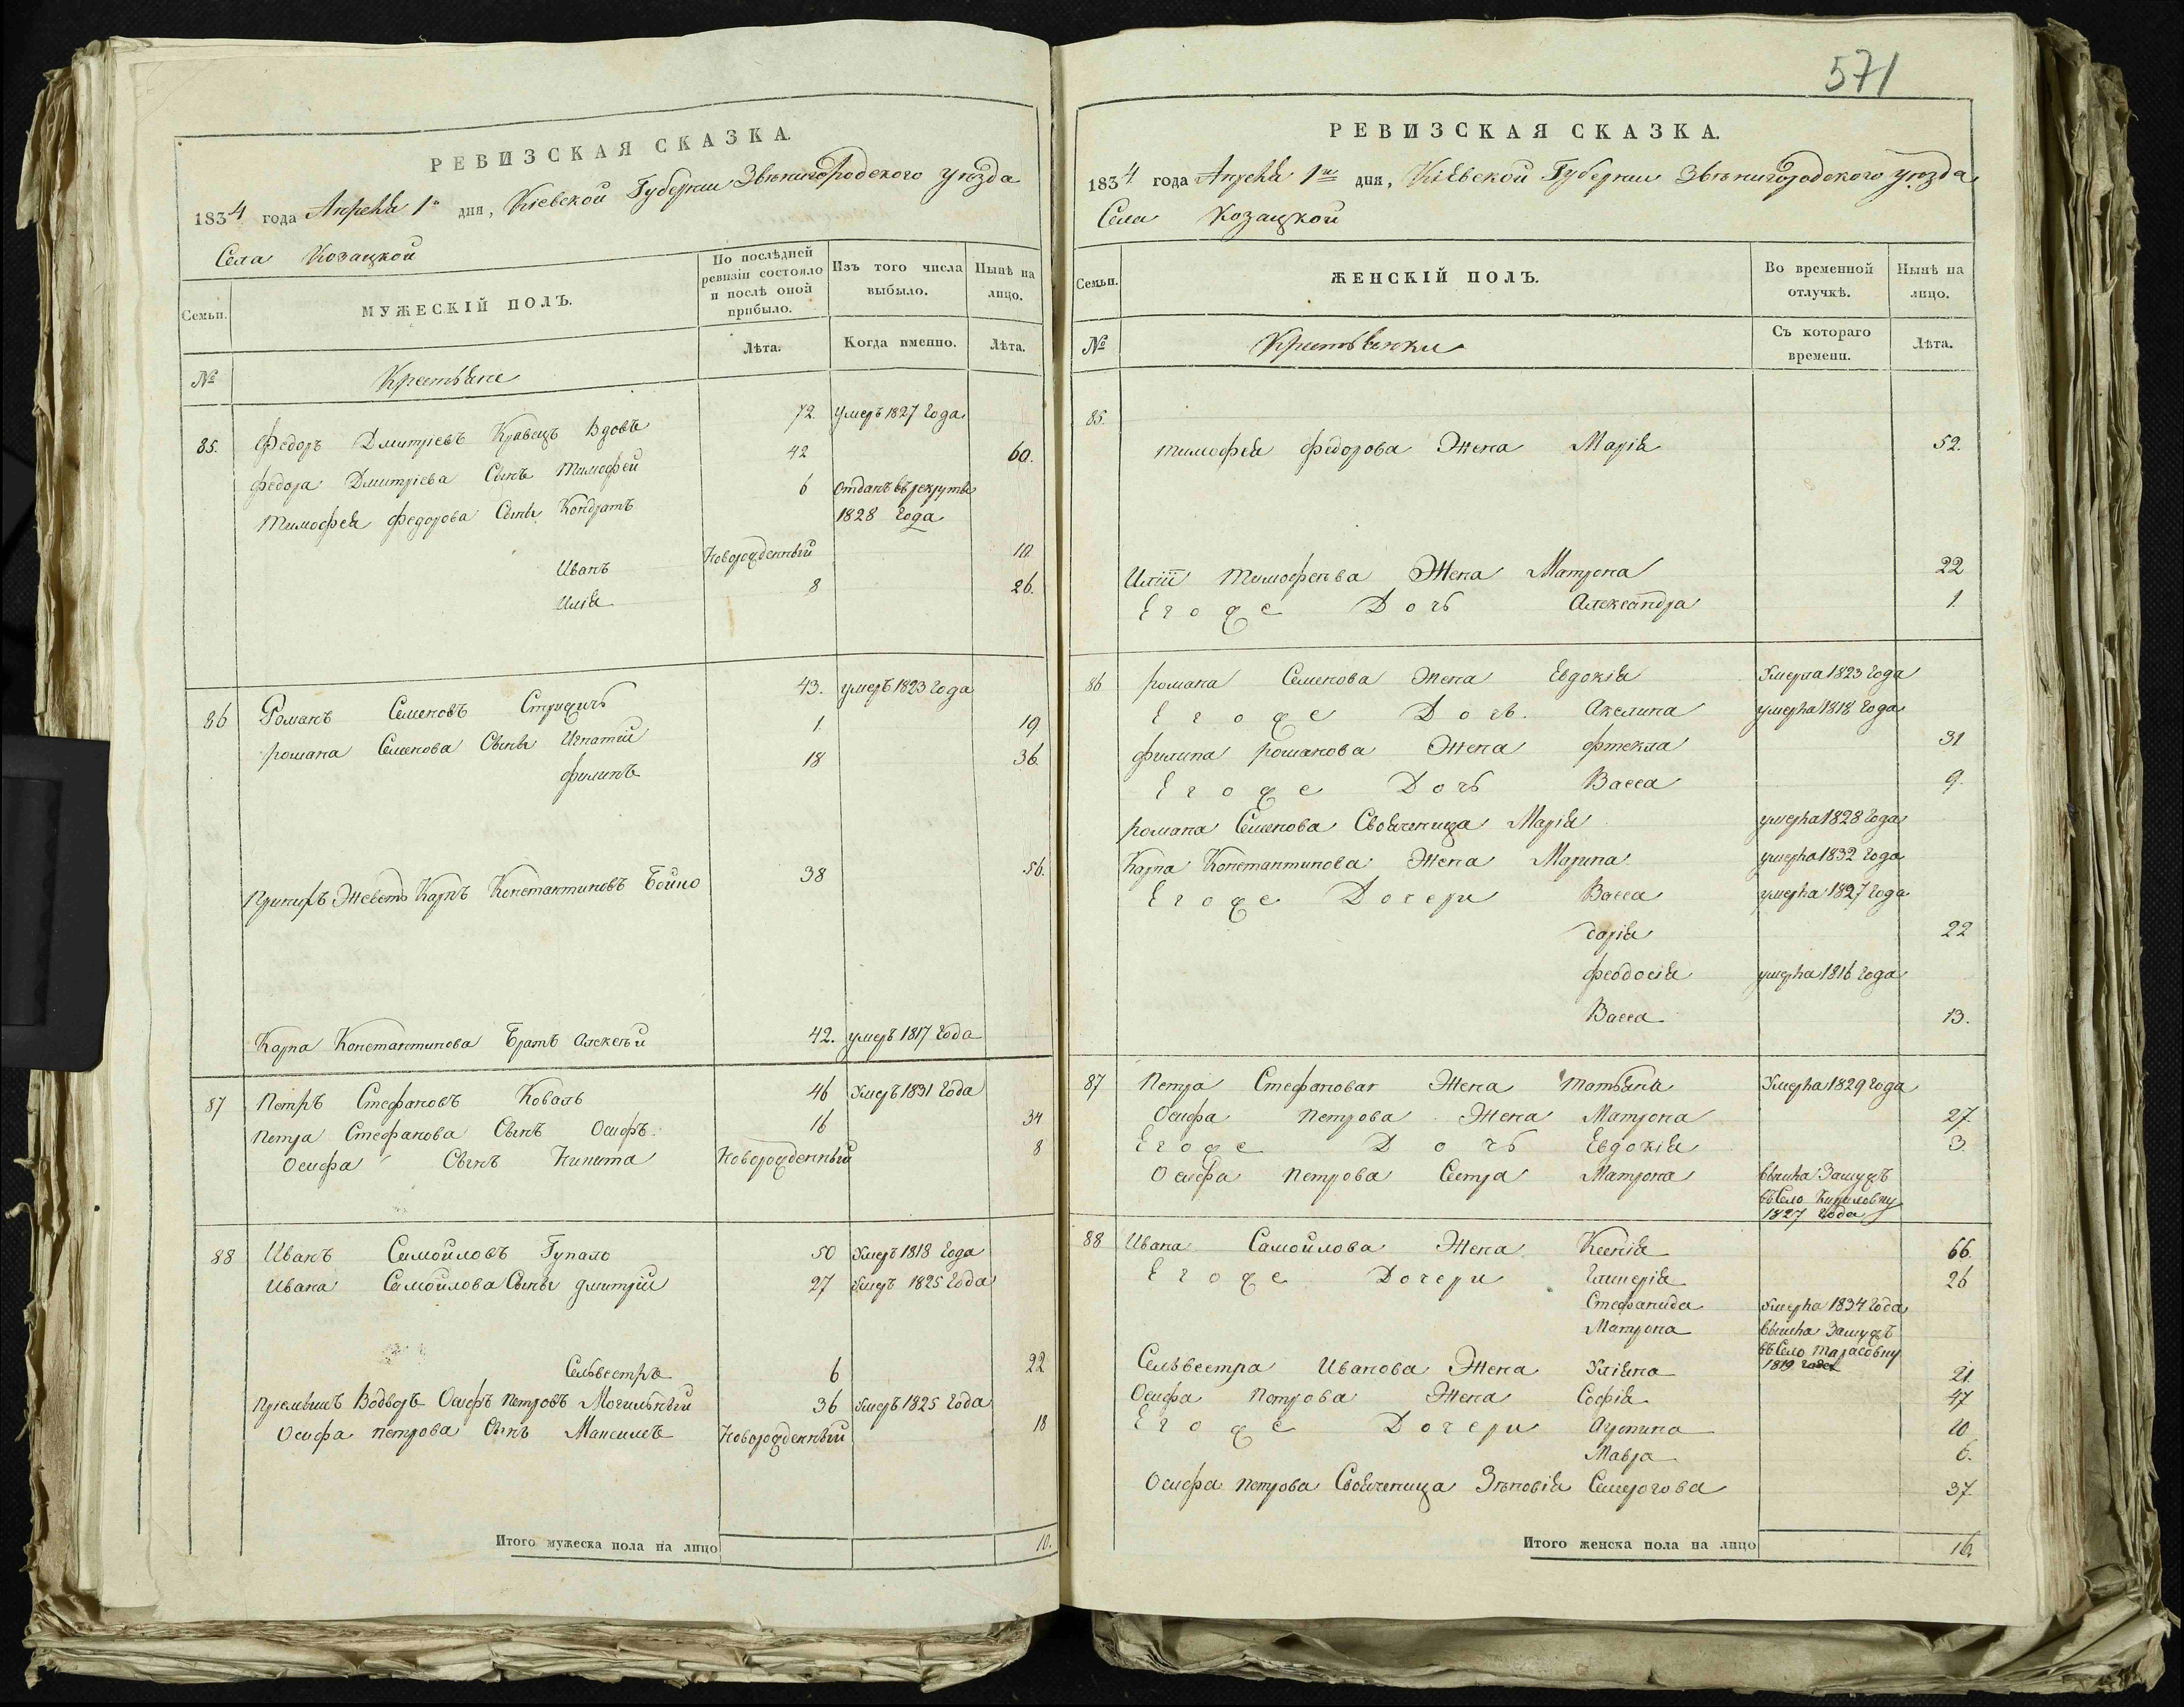 РЕВИЗСКАЯ СКАЗКА.
1834 года Апреля 1го дня, Кіевской Губерніи Звѣнигородского уѣзда
Села Козацкой
Семьи.
МУЖЕСКІЙ ПОЛЪ.
По послѣдней ревизіи состояло и послѣ оной прибыло.
Изъ того числа выбыло.
Нынѣ на лицо.
№
Крестьяне
Лѣта.
Когда именно.
Лѣта.
85. Федоръ Дмитріевъ Кравецъ Вдовъ 72. умеръ 1827 Года
Федора Дмитріева Сынъ Тимофей 42 60.
Тимофея Федорова Сыны Кондратъ 6 Отданъ въ рекруты
1828 Года
Иванъ Новорожденный 10
Илія 8 26.
86 Романъ Семеновъ 43. умеръ 1823 Года
Романа Семенова Сыны Игнатій 1. 19
Филипъ 18 36.
Карпъ Константиновъ Бойко 38 56.
Карпа Константинова Братъ Алексѣй 42. умеръ 1817 Года
87 Петръ Стефановъ Коваль 46 Умеръ 1831 Года
Петра Стефанова Сынъ Осифъ 16 34
Осифа Сынъ Никита Новорожденный 8
88 Иванъ Самойловъ Гупало 50 Умеръ 1818 Года
Ивана Самойлова Сыны Дмитрій 27 Умеръ 1825 Года
Сельвестръ 6 22
Осифъ Петровъ Могильный 36 Умеръ 1825 Года
Осифа Петрова Сынъ Максимъ Новорожденный 18
Итого мужеска пола на лицо 10.
571
РЕВИЗСКАЯ СКАЗКА.
1834 года Апреля 1го дня, Кіевской Губерніи Звѣнигородского уѣзда
Села Козацкой
Семьи.
ЖЕНСКІЙ ПОЛЪ.
Во временной отлучкѣ.
Нынѣ на лицо.
№
Крестьянки
Съ котораго времени.
Лѣта.
85.
Тимофея Федорова Жена Марія 52.
Иліи Тимофеева Жена Матрона 22
Егоже Дочь Александра 1.
86 Романа Семенова Жена Евдокія Умерла 1823 Года
Егоже Дочь Акелина умерла 1818 Года
Филипа Романова Жена Фтекла 31
Егоже Дочь Васса 9.
Романа Семенова Своячница Марія умерла 1828 Года
Карпа Константинова Жена Марина умерла 1832 Года
Егоже Дочери Васса умерла 1827 Года
Дарія 22
Феодосія умерла 1816 Года
Васса 13.
87 Петра Стефанова Жена Татьяна Умерла 1829 Года
Осифа Петрова Жена Матрона 27.
Егоже Дочь Евдокія 3.
Осифа Петрова Сестра Матрона вышла Замужъ
въ Село Кириловку
1827 Года
88 Ивана Самойлова Жена Ксенія 66.
Егоже Дочери Гликерія 26
Стефанида Умерла 1834 Года
Матрона вышла Замужъ
въ Село Тарасовку
1819 Года
Сельвестра Иванова Жена Уліяна 21.
Осифа Петрова Жена Софія 47
Егоже Дочери Агрипина 10
Мавра 6.
Осифа Петрова Своячница Зѣновія 37.
Итого женска пола на лицо 16.